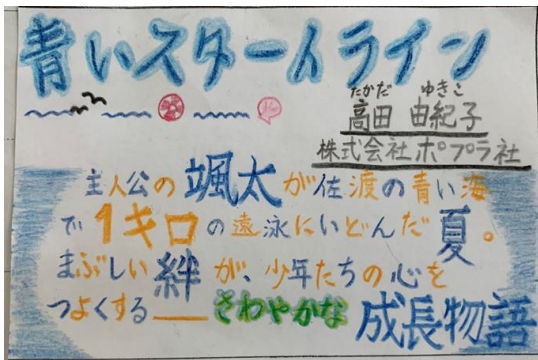 青いスタートライン
たかだ ゆきこ
高田 由紀子
株式会社ポプラ社
主人公の颯太が佐渡の青い海
で1キロの遠泳にいどんだ夏。
まぶしい絆が、少年たちの心を
つよくする――さわやかな成長物語